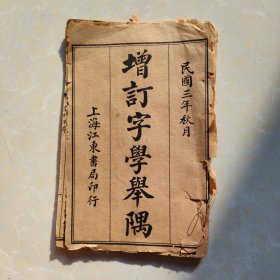 民國三年秋月
增訂字學舉隅
上海江東書局印行